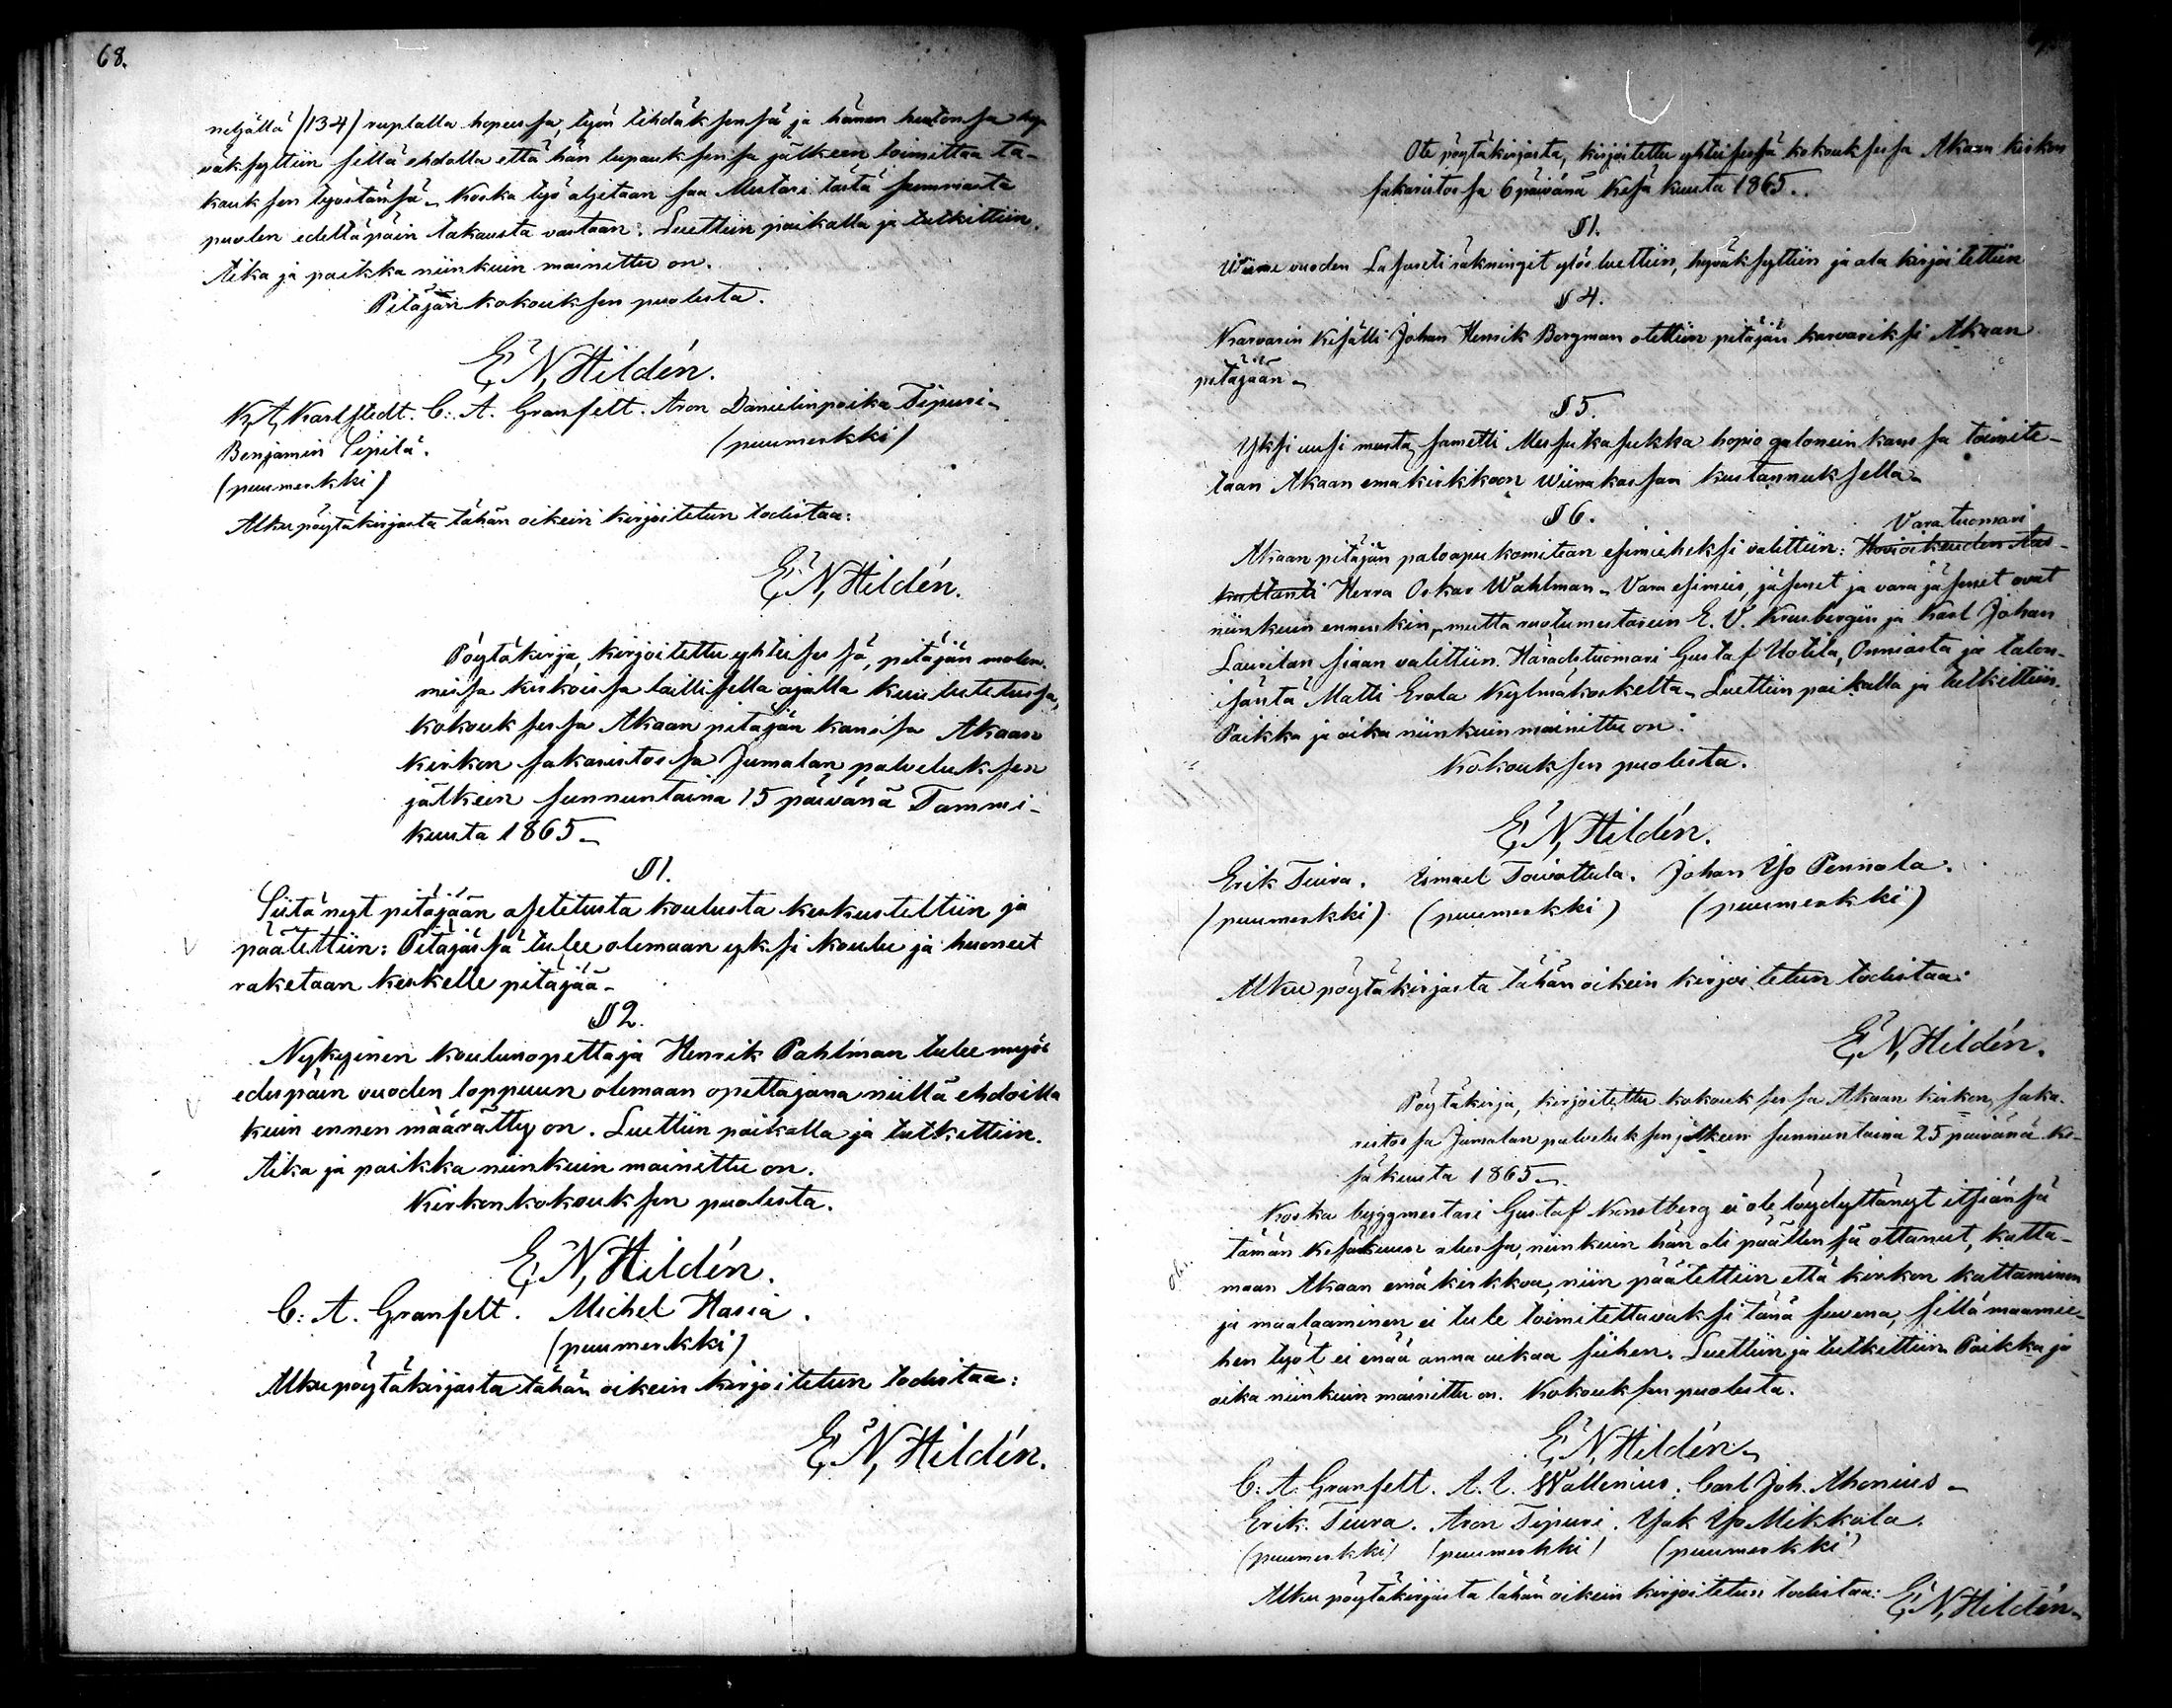 68.
neljällä /134/ ruplalla hopeassa, työn tehdäksensä ja hänen huutonsa hy-
väksyttiin sillä ehdolla että hän lupauksensa jälkeen toimittaa ta-
kauksen työstänsä. Koska työ aljetaan saa Mestari tästä summasta
puolen edeltäpäin takausta vastaan. Luettiin paikalla ja tutkittiin.
Aika ja paikka niinkuin mainittu on.
Pitäjän kokouksen puolesta.
E, N, Hildén.
K, A, Karlstedt. C: A. Granfelt. Aron Danielinpoika Tipuri.
Benjamin Sipilä. (puumerkki)
(puumerkki)
Alku pöytäkirjasta tähän oikein kirjoitetun todistaa:
E, N, Hildén.
Pöytäkirja, kirjoitettu yhteisessä, pitäjän molem-
missa kirkoissa laillisella ajalla kuulutetussa,
kokouksessa Akaan pitäjän kanssa Akaan
kirkon sakaristossa Jumalan palveluksen
jälkeen sunnuntaina 15 päivänä Tammi-
kuuta 1865.
§ 1.
Siitä nyt pitäjään asetetusta koulusta keskusteltiin ja
päätettiin: Pitäjässä tulee olemaan yksi koulu ja huoneet
raketaan keskelle pitäjää.
§ 2.
Nykyinen koulunopettaja Henrik Pahlman tulee myös
edespäin vuoden loppuun olemaan opettajana niillä ehdoilla
kuin ennen määrätty on. Luettiin paikalla ja tutkittiin.
Aika ja paikka niinkuin mainittu on.
Kirkonkokouksen puolesta.
E, N, Hildén.
C: A. Granfelt. Michel Hasia.
(puumerkki)
Alkupöytäkirjasta tähän oikein kirjoitetun todistaa:
E, N, Hildén.
Ote pöytäkirjasta, kirjoitettu yhteisessä kokouksessa Akaan kirkon
sakaristossa 6 päivänä Kesäkuuta 1865.
§ 1.
Wiime vuoden Lasareti räkningit ylös luettiin, hyväksyttiin ja ala kirjoitettiin
§ 4.
Karvarin Kisälli Johan Henrik Bergman otettiin pitäjän karvariksi Akaan
pitäjään.
§ 5.
Yksi uusi musta sametti Messukasukka hopia galonein kanssa toimite-
taan Akaan emäkirkkoon Wiinakassan kustannuksella.
§ 6.
Varatuomari
Akaan pitäjän paloapu komitean esimieheksi valittiin: Hovioikeuden Aus-
kultanti Herra Oskar Wahlman. Vara esimies, jäsenet ja vara jäsenet ovat
niinkuin ennenkin, mutta ruotumestarin E. V. Krusbergin ja Karl Johan
Laurilan siaan valittiin Häradstuomari Gustaf Uotila, Onniasta ja talon-
isäntä Matti Erola Kylmäkoskelta. Luettiin paikalla ja tutkittiin.
Paikka ja aika niinkuin mainittu on.
Kokouksen puolesta.
E, N, Hildén.
Erik Tiura. Ismael Toivottula. Johan Yso Pennola.
(puumerkki) (puumerkki) (puumerkki)
Alku pöytäkirjasta tähän oikein kirjoitetun todistaa:
E, N, Hildén.
Pöytäkirja, kirjoitettu kokouksessa Akaan kirkon saka-
ristossa Jumalan palveluksen jälkeen sunnuntaina 25 päivänä Ke-
säkuuta 1865.
Koska byggmestari Gustaf Konstberg ei ole löydyttänyt itsiänsä
tämän Kesäkuun alussa, niinkuin hän oli päällensä ottanut, katta-
maan Akaan emäkirkkoa, niin päätettiin että kirkon kattaminen
ja maalaaminen ei tule toimitettavaksi tänä suvena, sillä maamie-
hen työt ei enää anna aikaa siihen. Luettiin ja tutkittiin. Paikka ja
aika niinkuin mainittu on. Kokouksen puolesta.
E, N, Hildén.
C: A. Granfelt. A. L. Wallenius. Carl Joh. Ahonius.
Erik. Tiura. Aron Tipuri. Isak Yso Mikkola.
(puumerkki) (puumerkki) (puumerkki)
Alku pöytäkirjasta tähän oikein kirjoitetun todistaa: E, N, Hildén.